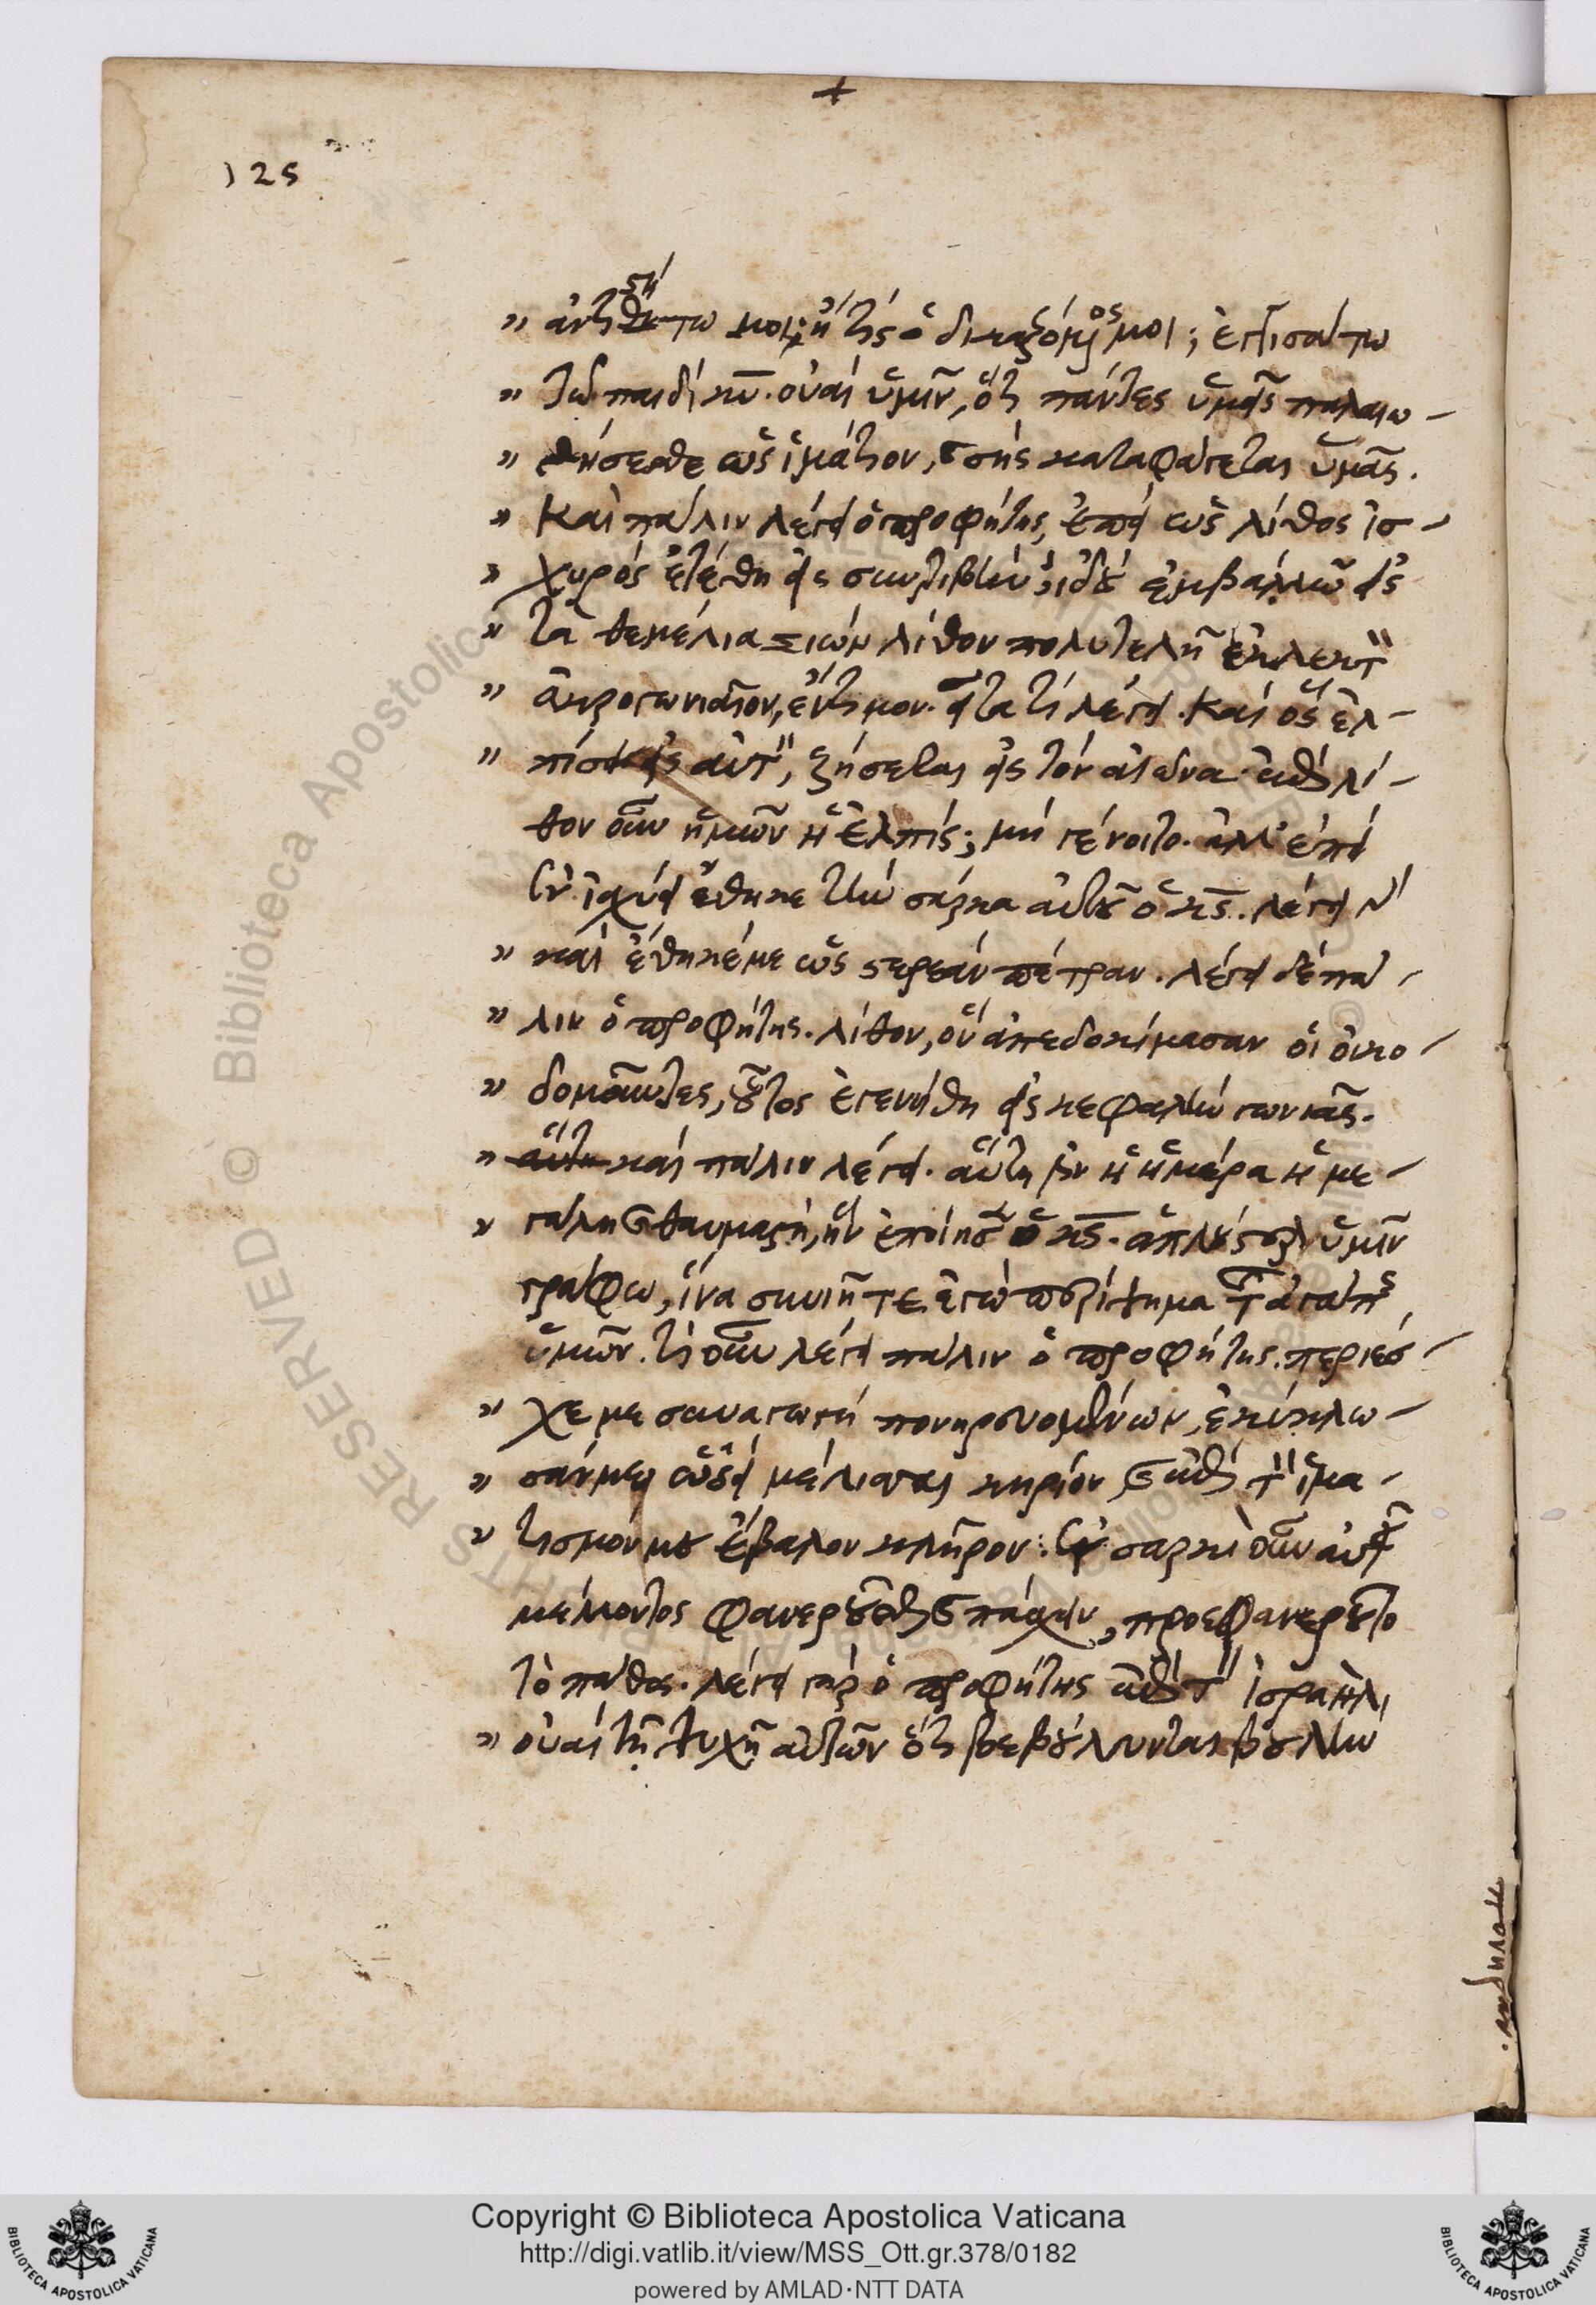 125
" ἀντιστήτω μοι; ἢ τίς ὁ δικαζόμενος μοι; ἐγγισάτω
" τῶ παιδὶ κυ. οὐαὶ ὑμῖν, ὅτι πάντες ὑμεῖς παλαιω-
" θήσεσθε ὡς ἱμάτιον, καὶ σὴς καταφάγεται ὑμᾶς.
" Καὶ πάλιν λέγει ὁ προφήτης, ἐπεὶ ὡς λίθος ἰσ-
" χυρὸς ἐτέθη εἰς συντριβήν, ἰδοὺ ἐμβαλλῶ εἰς
" τὰ θεμέλια σιὼν λίθον πολυτελῆ ἐκλεκτὸν
" ἀκρογωνιαῖον, ἔντιμον. εἶτα τί λέγει. Καὶ ὃς ἐλ-
" πίσει εἰς αὐτὸν, ζήσεται εἰς τὸν αἰῶνα. ἐπὶ λί-
θον οὖν ἡμῶν ἡ ἐλπίς; μὴ γένοιτο. ἀλλ' ἐπεὶ
ἐν ἰσχύει ἔθηκε τὴν σάρκα αὐτοῦ ὁ κς. λέγει γὰρ
" καὶ ἔθηκέ με ὡς στερεὰν πέτραν. λέγει δὲ πά-
" λιν ὁ προφήτης. λίθον, ὃν ἀπεδοκίμασαν οἱ οἰκο-
" δομοῦντες, οὗτος ἐγενήθη εἰς κεφαλὴν γωνίας.
" αὕτη καὶ πάλιν λέγει. αὕτη ἐστὶν ἡ ἡμέρα ἡ με-
" γάλη καὶ θαυμαστὴ, ἣν ἐποίησεν ὁ κς. ἁπλούστερον ὑμῖν
γράφω, ἵνα συνιῆτε. ἐγὼ περίψημα τῆς ἀγάπης
ὑμῶν. τί οὖν λέγει πάλιν ὁ προφήτης. περιέσ-
" χε με συναγωγὴ πονηρευομένων, ἐκύκλω-
" σάν με ὡσεὶ μέλισσαι κηρίον καὶ ἐπὶ τὸν ἱμα-
" τισμόν μου ἔβαλον κλῆρον. ἐν σαρκὶ οὖν αὐτοῦ
μέλλοντος φανεροῦσθαι καὶ πάσχειν, προεφανεροῦτο
τὸ πάθος. λέγει γὰρ ὁ προφήτης ἐπὶ τὸν ἰσραήλ,
" οὐαὶ τῇ ψυχῇ αὐτῶν ὅτι βεβούλευνται βουλὴν
Copyright © Biblioteca Apostolica Vaticana
http://digi.vatlib.it/view/MSS_Ott.gr.378/0182
powered by AMLAD·NTT DATA